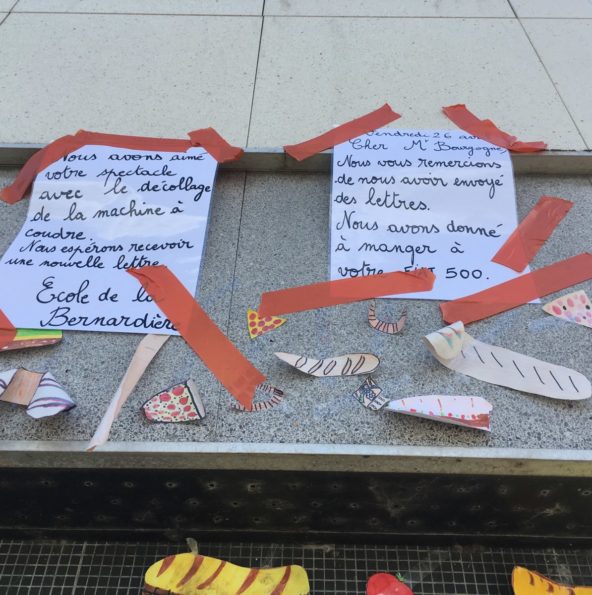 Nous avons aimé
votre spectacle
avec le décollage
de la machine à
coudre.
Nous espérons recevoir
une nouvelle lettre
École de la
Bernardière
Vendredi 26
Cher Mr Bourgogne
Nous vous remercions
de nous avoir envoyé
des lettres.
Nous avons donné
à manger à
votre FIAT 500.